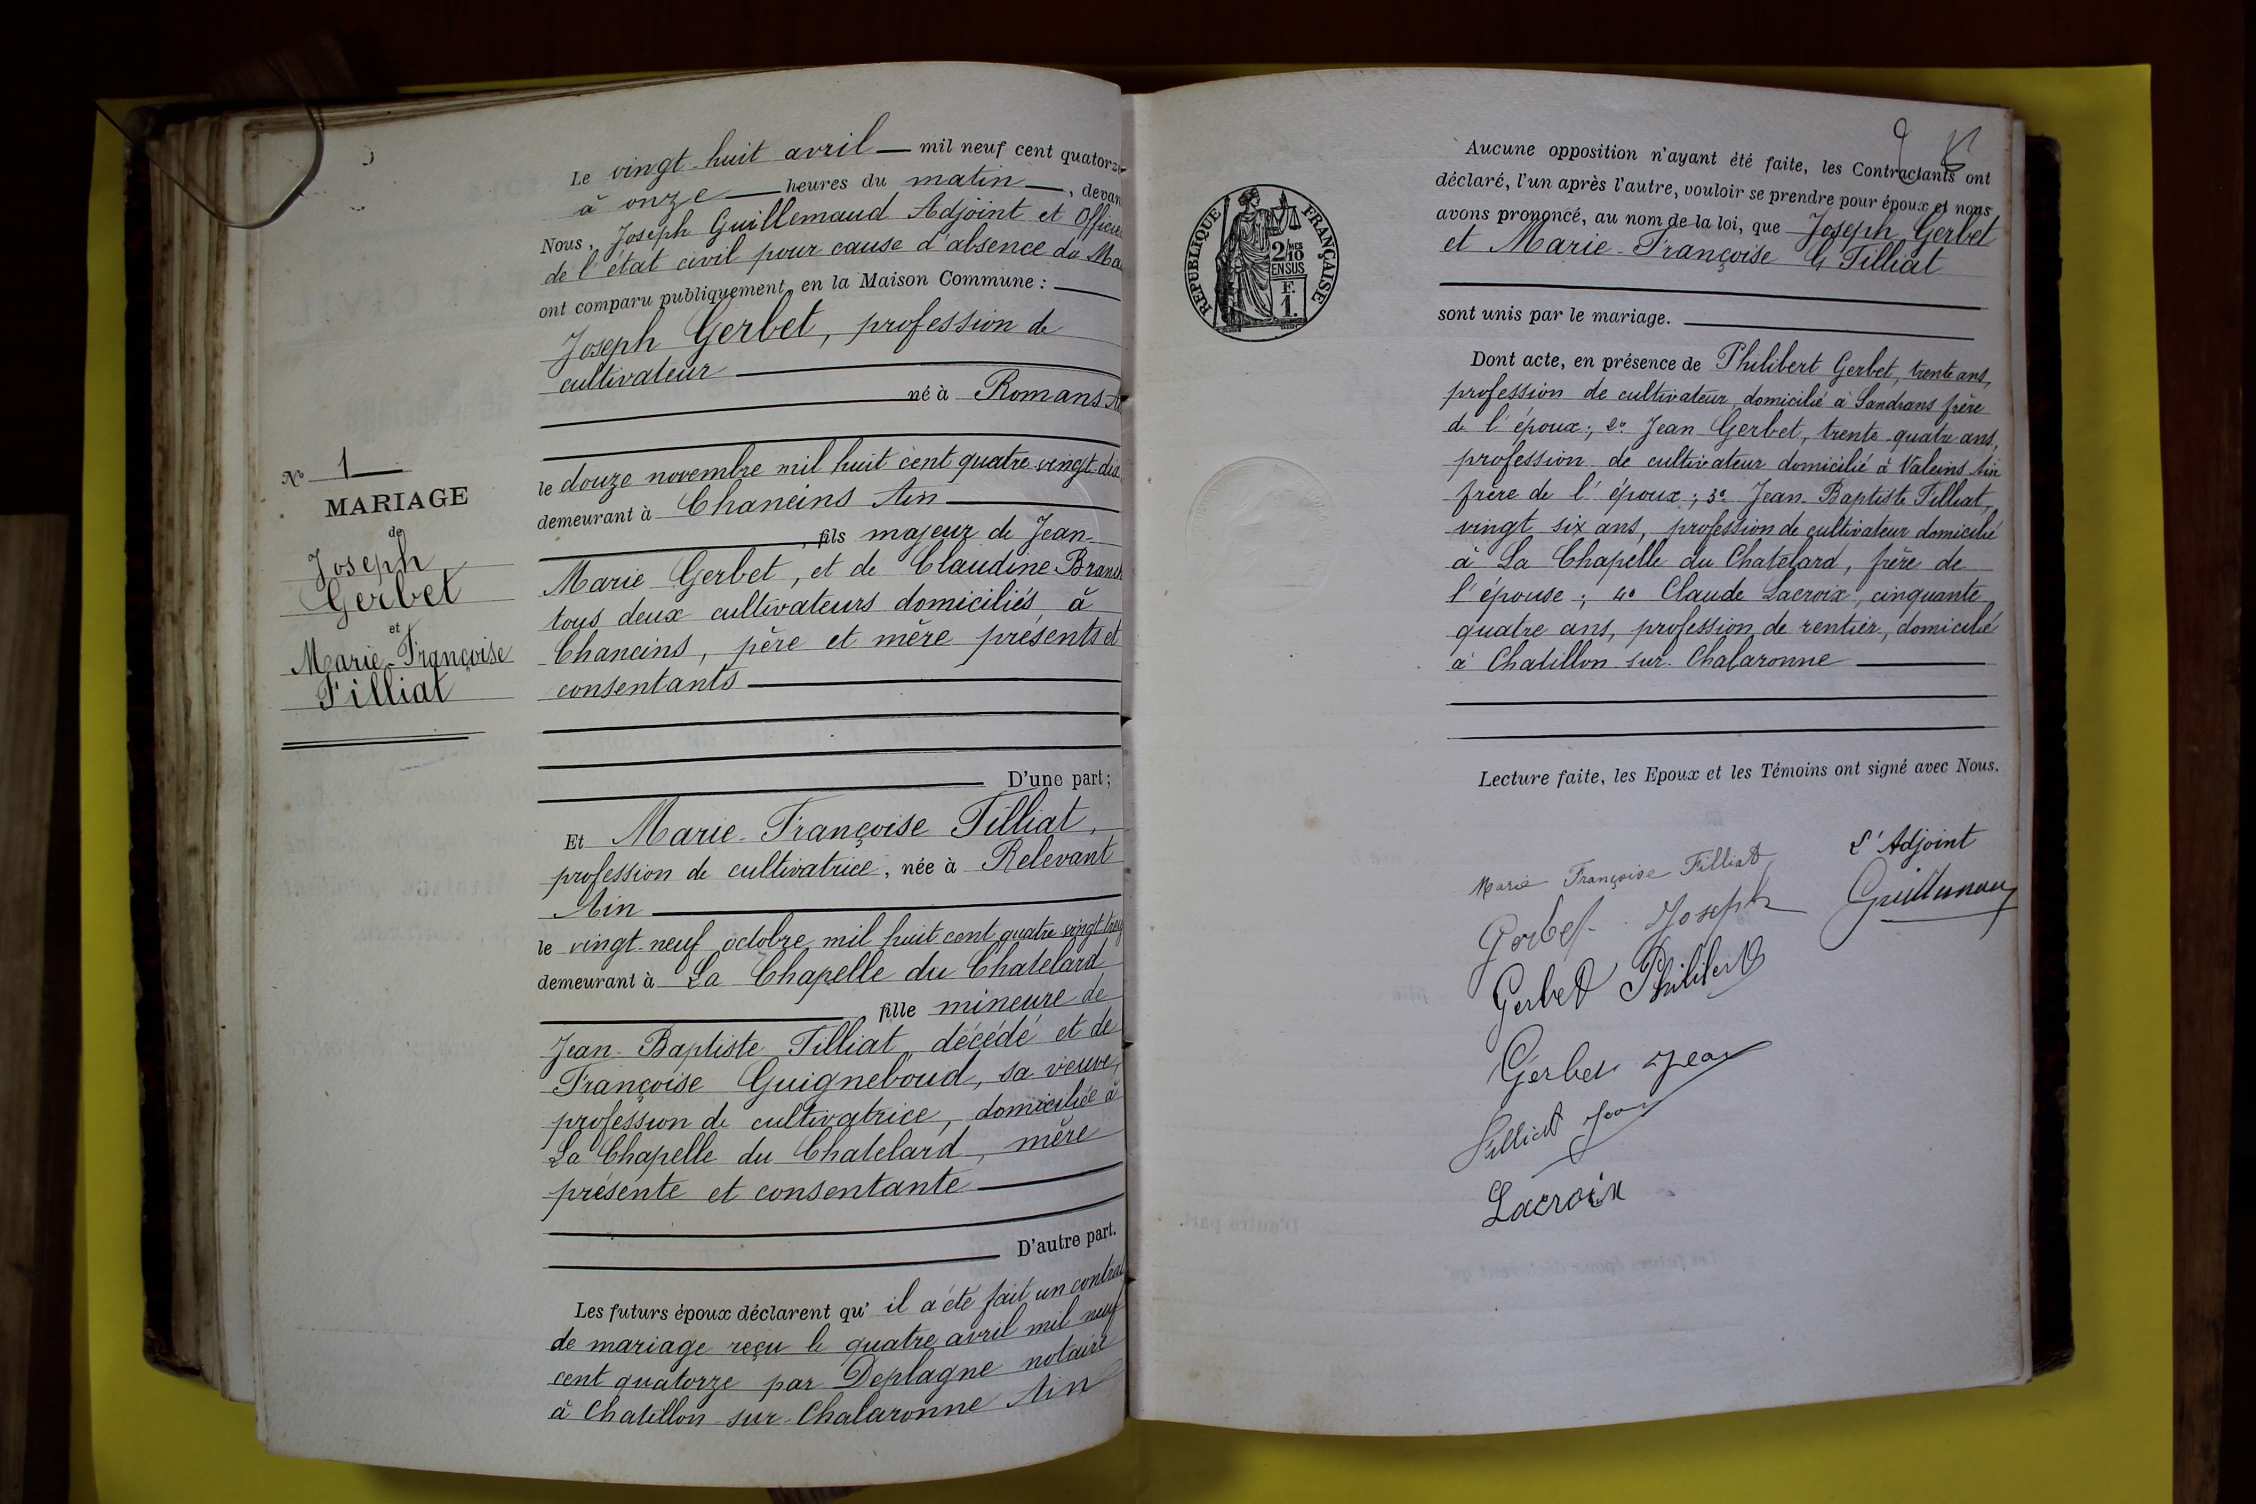 Le vingt-huit avril — mil neuf cent quatorze
à onze — heures du matin —, devan
Nous, Joseph Guillemaud Adjoint et Officier
de l'état civil pour cause d'absence du Ma
ont comparu publiquement en la Maison Commune :
Joseph Gerbet, profession de
cultivateur
né à Romans
le douze novembre mil huit cent quatre vingt-dix
demeurant à Chaneins Ain
, fils majeur de Jean-
Marie Gerbet, et de Claudine Branch
tous deux cultivateurs domiciliés à
Chaneins, père et mère présents et
consentants
D'une part;
Et Marie-Françoise Filliat,
profession de cultivatrice, née à Relevant
Ain
le vingt-neuf octobre mil huit cent quatre vingt treiz
demeurant à La Chapelle du Chatelard
fille mineure de
Jean-Baptiste Filliat, décédé et de
Françoise Guigneboud, sa veuve,
profession de cultivatrice, domiciliée à
La Chapelle du Chatelard, mère
présente et consentante
D'autre part.
Les futurs époux déclarent qu'il a été fait un contrat
de mariage reçu le quatre avril mil neuf
cent quatorze par Deplagne notaire
à Chatillon-sur-Chalaronne Ain
N° 1
MARIAGE
de
Joseph
Gerbet
et
Marie-Françoise
Filliat
RÉPUBLIQUE FRANÇAISE
2/10
EN SUS
F.
1.
Aucune opposition n'ayant été faite, les Contractants ont
déclaré, l'un après l'autre, vouloir se prendre pour époux et nous
avons prononcé, au nom de la loi, que Joseph Gerbet
et Marie-Françoise Filliat
sont unis par le mariage.
Dont acte, en présence de Philibert Gerbet, trente ans,
profession de cultivateur, domicilié à Sandrans frère
de l'époux; 2° Jean Gerbet, trente-quatre ans,
profession de cultivateur domicilié à Valeins Ain
frère de l'époux; 3° Jean-Baptiste Filliat,
vingt six ans, profession de cultivateur domicilié
à La Chapelle du Chatelard, frère de
l'épouse; 4° Claude Lacroix, cinquante
quatre ans, profession de rentier, domicilié
à Chatillon-sur-Chalaronne
Lecture faite, les Epoux et les Témoins ont signé avec Nous.
L'Adjoint
Marie Françoise Filliat
Guillemaud
Gerbet Joseph
Gerbet Philibert
Gerbet Jean
Filliat Jean
Lacroix